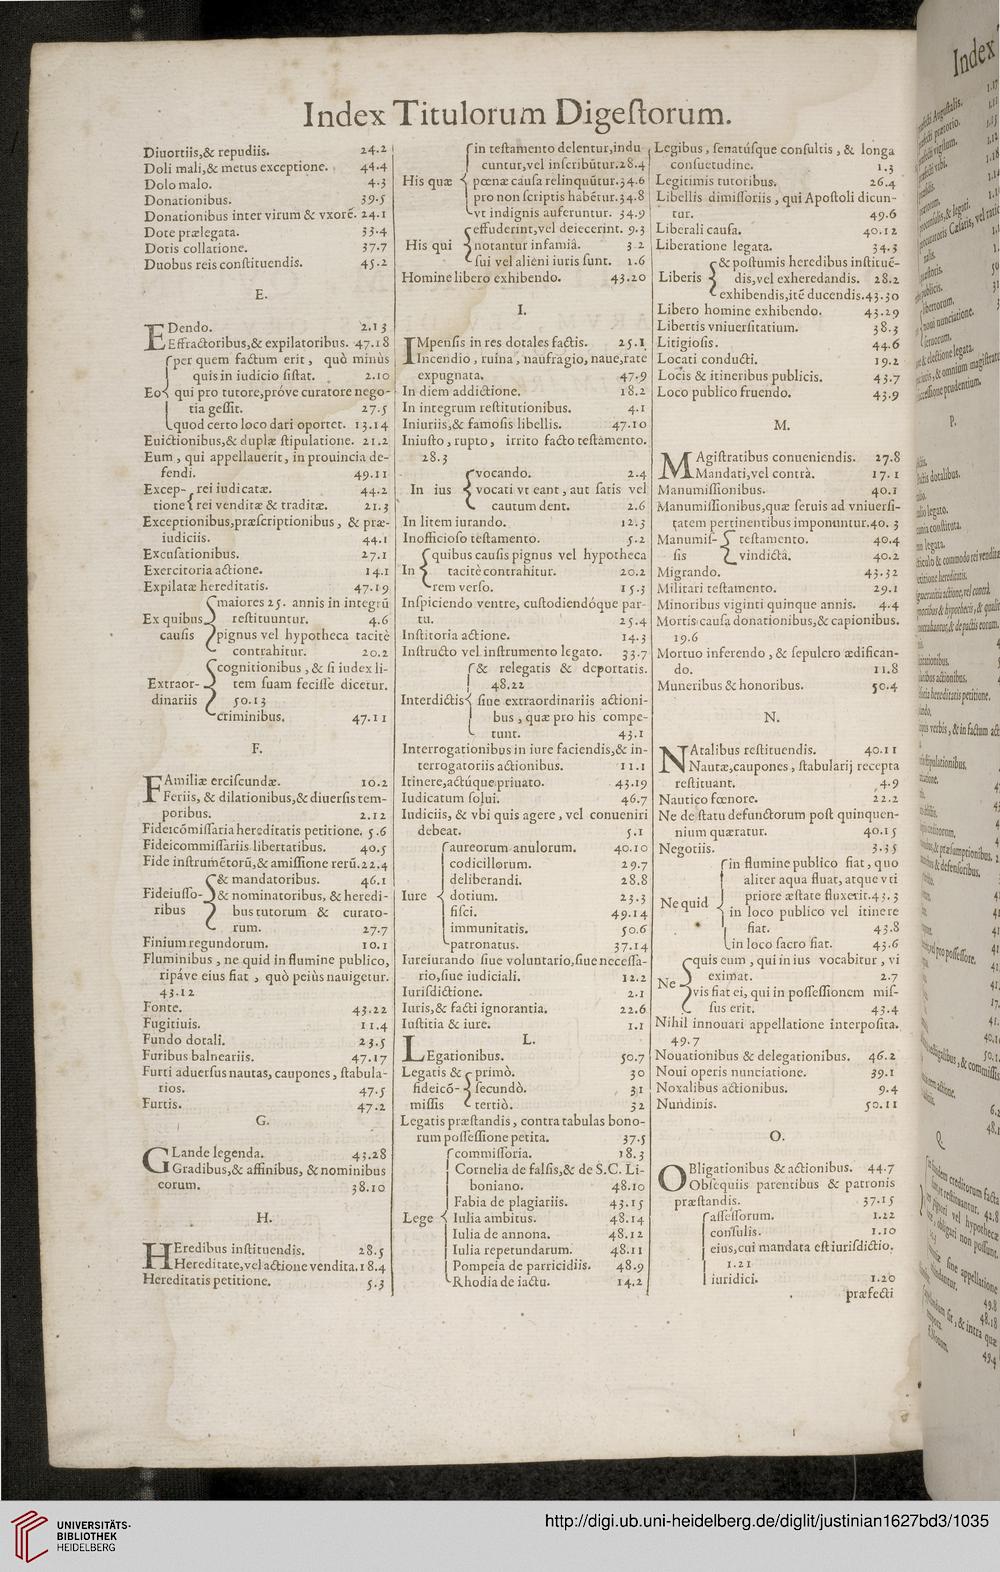 Index Titulorum Digeſtorum.
Diuortiis,& repudiis. 24.2
Doli mali,& metus exceptione. 44.4
Dolo malo. 4.3
Donationibus. 39.5
Donationibus inter virum & vxorē. 24.1
Dote prælegata. 33.4
Dotis collatione. 37.7
Duobus reis conſtituendis. 45.2
E.
EDendo. 2.13
Effractoribus,& expilatoribus. 47.18
per quem factum erit, quò minùs
quis in iudicio ſiſtat. 2.10
Eo qui pro tutore,próve curatore nego-
tia geſſit. 27.5
quod certo loco dari oportet. 13.14
Euictionibus,& duplæ ſtipulatione. 21.2
Eum, qui appellauerit, in prouincia de-
fendi. 49.11
Excep- rei iudicatæ. 44.2
tione rei venditæ & traditæ. 21.3
Exceptionibus,præſcriptionibus, & præ-
iudiciis. 44.1
Excuſationibus. 27.1
Exercitoria actione. 14.1
Expilatæ hereditatis. 47.19
maiores 25. annis in integrū
Ex quibus reſtituuntur. 4.6
cauſis pignus vel hypotheca tacitè
contrahitur. 20.2
cognitionibus, & ſi iudex li-
Extraor- tem ſuam feciſſe dicetur.
dinariis 50.13
criminibus. 47.11
F.
FAmiliæ erciſcundæ. 10.2
Feriis, & dilationibus,& diuerſis tem-
poribus. 2.12
Fideicōmiſſaria hereditatis petitione. 5.6
Fideicommiſſariis libertatibus. 40.5
Fide inſtrumētorū,& amiſſione rerū.22.4
& mandatoribus. 46.1
Fideiuſſo- & nominatoribus, & heredi-
ribus bus tutorum & curato-
rum. 27.7
Finium regundorum. 10.1
Fluminibus, ne quid in flumine publico,
ripáve eius fiat, quò peiùs nauigetur.
43.12
Fonte. 43.22
Fugitiuis. 11.4
Fundo dotali. 23.5
Furibus balneariis. 47.17
Furti aduerſus nautas, caupones, ſtabula-
rios. 47.5
Furtis. 47.2
G.
GLande legenda. 43.28
Gradibus,& affinibus, & nominibus
eorum. 38.10
H.
HEredibus inſtituendis. 28.5
Hereditate,vel actione vendita.18.4
Hereditatis petitione. 5.3
in teſtamento delentur,indu
cuntur,vel inſcribūtur.28.4
His quæ pœnæ cauſa relinquūtur.34.6
pro non ſcriptis habētur.34.8
vt indignis auferuntur. 34.9
effuderint,vel deiecerint. 9.3
His qui notantur infamiâ. 3 2
ſui vel alieni iuris ſunt. 1.6
Homine libero exhibendo. 43.20
I.
IMpenſis in res dotales factis. 25.1
Incendio, ruina, naufragio, naue,rate
expugnata. 47.9
In diem addictione. 18.2
In integrum reſtitutionibus. 4.1
Iniuriis,& famoſis libellis. 47.10
Iniuſto, rupto, irrito facto teſtamento.
28.3
vocando. 2.4
In ius vocati vt eant, aut ſatis vel
cautum dent. 2.6
In litem iurando. 12.3
Inofficioſo teſtamento. 5.2
quibus cauſis pignus vel hypotheca
In tacitè contrahitur. 20.2
rem verſo. 15.3
Inſpiciendo ventre, cuſtodiendóque par-
tu. 25.4
Inſtitoria actione. 14.3
Inſtructo vel inſtrumento legato. 33.7
& relegatis & deportatis.
48.22
Interdictis ſiue extraordinariis actioni-
bus, quæ pro his compe-
tunt. 43.1
Interrogationibus in iure faciendis,& in-
terrogatoriis actionibus. 11.1
Itinere,actúque priuato. 43.19
Iudicatum ſolui. 46.7
Iudiciis, & vbi quis agere, vel conueniri
debeat. 5.1
aureorum anulorum. 40.10
codicillorum. 29.7
deliberandi. 28.8
Iure dotium. 23.3
fiſci. 49.14
immunitatis. 50.6
patronatus. 37.14
Iureiurando ſiue voluntario,ſiue neceſſa-
rio,ſiue iudiciali. 12.2
Iuriſdictione. 2.1
Iuris,& facti ignorantia. 22.6
Iuſtitia & iure. 1.1
L.
LEgationibus. 50.7
Legatis & primò. 30
fideicō- ſecundò. 31
miſſis tertiò. 32
Legatis præſtandis, contra tabulas bono-
rum poſſeſſione petita. 37.5
commiſſoria. 18.3
Cornelia de falſis,& de S.C. Li-
boniano. 48.10
Fabia de plagiariis. 43.15
Lege Iulia ambitus. 48.14
Iulia de annona. 48.12
Iulia repetundarum. 48.11
Pompeia de parricidiis. 48.9
Rhodia de iactu. 14.2
Legibus, ſenatúſque conſultis, & longa
conſuetudine. 1.3
Legitimis tutoribus. 26.4
Libellis dimiſſoriis, qui Apoſtoli dicun-
tur. 49.6
Liberali cauſa. 40.12
Liberatione legata. 34.3
& poſtumis heredibus inſtituē-
Liberis dis,vel exheredandis. 28.2
exhibendis,itē ducendis.43.30
Libero homine exhibendo. 43.29
Libertis vniuerſitatium. 38.3
Litigioſis. 44.6
Locati conducti. 19.2
Locis & itineribus publicis. 43.7
Loco publico fruendo. 43.9
M.
MAgiſtratibus conueniendis. 27.8
Mandati,vel contrà. 17.1
Manumiſſionibus. 40.1
Manumiſſionibus,quæ ſeruis ad vniuerſi-
tatem pertinentibus imponuntur.40. 3
Manumiſ- teſtamento. 40.4
ſis vindictâ. 40.2
Migrando. 43.32
Militari teſtamento. 29.1
Minoribus viginti quinque annis. 4.4
Mortis cauſa donationibus,& capionibus.
19.6
Mortuo inferendo, & ſepulcro ædifican-
do. 11.8
Muneribus & honoribus. 50.4
N.
NAtalibus reſtituendis. 40.11
Nautæ,caupones, ſtabularij recepta
reſtituant. 4.9
Nautico fœnore. 22.2
Ne de ſtatu defunctorum poſt quinquen-
nium quæratur. 40.15
Negotiis. 3.35
in flumine publico fiat, quo
aliter aqua fluat, atque vti
Ne quid priore æſtate fluxerit.43.3
in loco publico vel itinere
fiat. 43.8
in loco ſacro fiat. 43.6
quis eum, qui in ius vocabitur, vi
Ne eximat. 2.7
vis fiat ei, qui in poſſeſſionem miſ-
ſus erit. 43.4
Nihil innouari appellatione interpoſita.
49.7
Nouationibus & delegationibus. 46.2
Noui operis nunciatione. 39.1
Noxalibus actionibus. 9.4
Nundinis. 50.11
O.
OBligationibus & actionibus. 44.7
Obſequiis parentibus & patronis
præſtandis. 37.15
aſſeſſorum. 1.22
conſulis. 1.10
eius,cui mandata eſt iuriſdictio.
1.21
iuridici. 1.20
præfecti
Index
P.
UNIVERSITÄTS-
BIBLIOTHEK
HEIDELBERG
http://digi.ub.uni-heidelberg.de/diglit/justinian1627bd3/1035